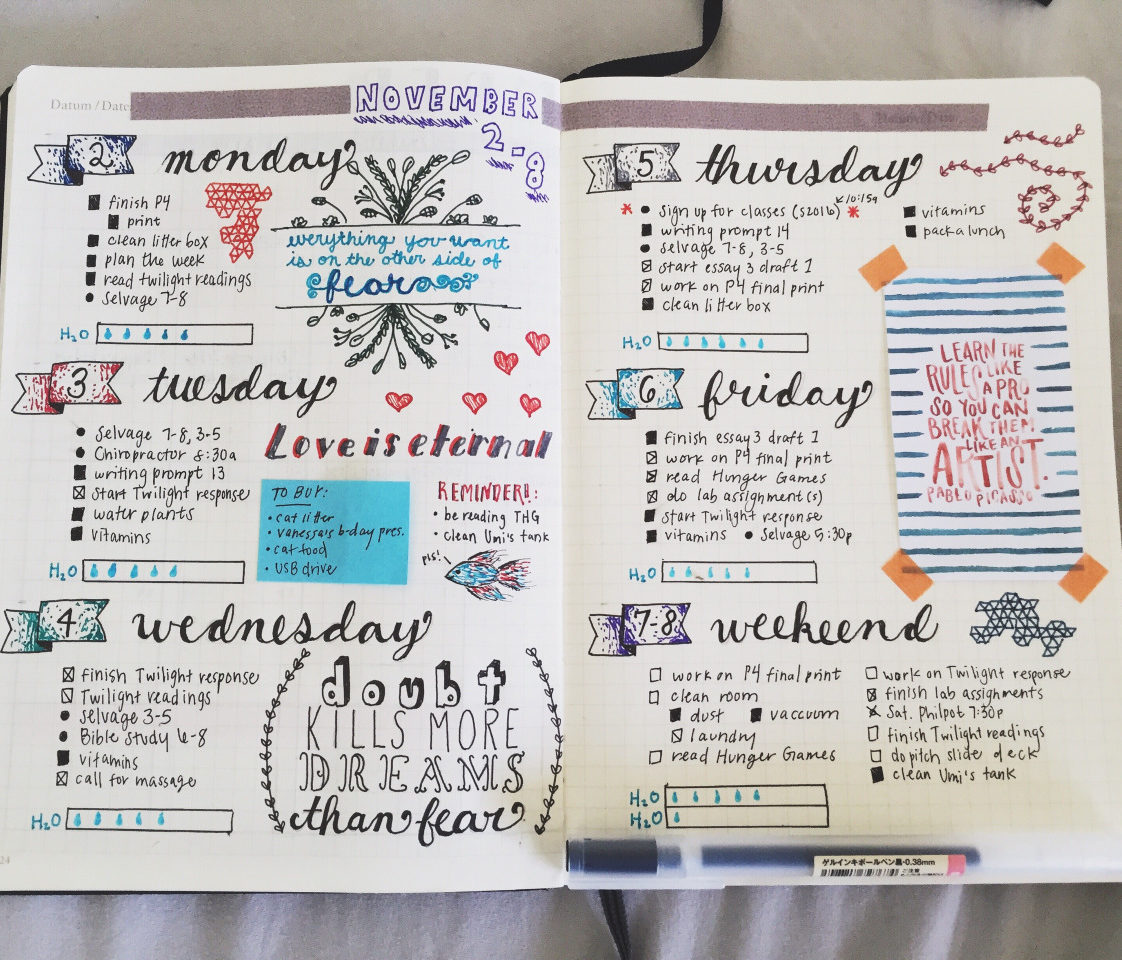 Datum / Date:
NOVEMBER
2-8
2
monday
finish P4
print
clean litter box
plan the week
read twilight readings
Selvage 7-8
H2O
everything you want
is on the other side of
fear
3
tuesday
Selvage 7-8, 3-5
Chiropractor 8:30a
writing prompt 13
start Twilight response
water plants
vitamins
H2O
Love is eternal
TO BUY:
• cat litter
• vanessa's b-day pres.
• cat food
• USB drive
REMINDER!!:
• be reading THG
• clean Umi's tank
pls!
4
wednesday
finish Twilight response
Twilight readings
Selvage 3-5
Bible Study 6-8
vitamins
call for massage
H2O
doubt
KILLS MORE
DREAMS
than fear
24
5
thursday
sign up for classes (s2016)
10:15a
writing prompt 14
selvage 7-8, 3-5
start essay 3 draft 1
work on P4 final print
clean litter box
vitamins
pack a lunch
H2O
LEARN THE
RULES LIKE
A PRO,
SO YOU CAN
BREAK THEM
LIKE AN
ARTIST.
PABLO PICASSO
6
friday
finish essay 3 draft 1
work on P4 final print
read Hunger Games
do lab assignment(s)
start Twilight response
vitamins • Selvage 5:30p
H2O
7-8
weekeend
work on P4 final print
clean room
dust vaccuum
laundry
read Hunger Games
work on Twilight response
finish lab assignments
Sat. Philpot 7:30p
finish Twilight readings
do pitch slide deck
clean Umi's tank
H2O
H2O
ゲルインキボールペン黒・0.38mm